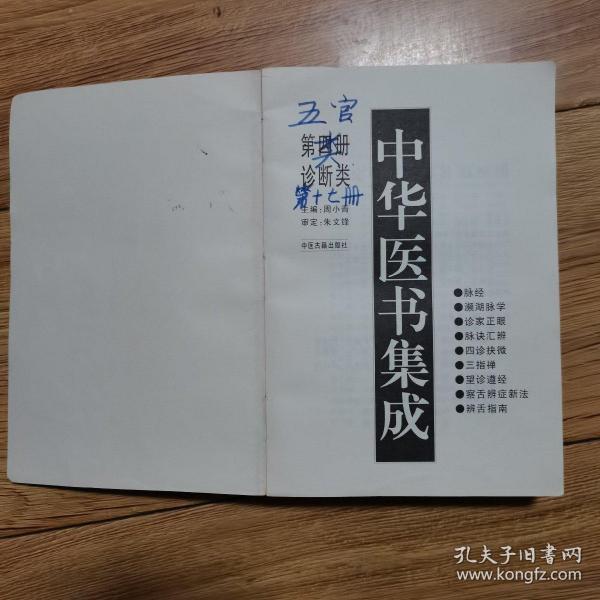 五官
类
第四册
诊断类
第十七册
主编:周小青
审定:朱文锋
中医古籍出版社
中华医书集成
●脉经
●濒湖脉学
●诊家正眼
●脉诀汇辨
●四诊抉微
●三指禅
●望诊遵经
●察舌辨症新法
●辨舌指南
孔夫子旧书网
www.kongfz.com